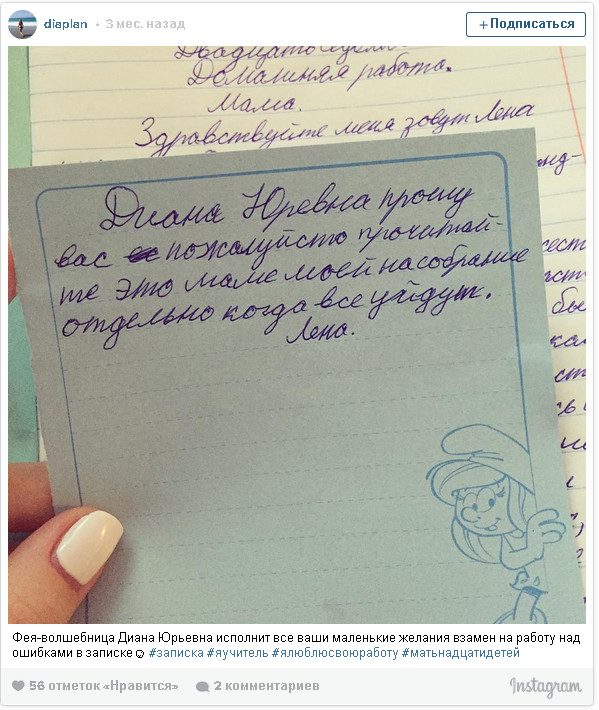 diaplan • 3 мес. назад
+ Подписаться
Домашняя работа.
Мама.
Здравствуйте меня зовут Лена
Диана Юревна прошу
вас пожалуйсто прочитай-
те это маме моей на собрание
отдельно когда все уйдут.
Лена.
Фея-волшебница Диана Юрьевна исполнит все ваши маленькие желания взамен на работу над
ошибками в записке☺ #записка #яучитель #ялюблюсвоюработу #матьнадцатидетей
56 отметок «Нравится» 2 комментариев
Instagram